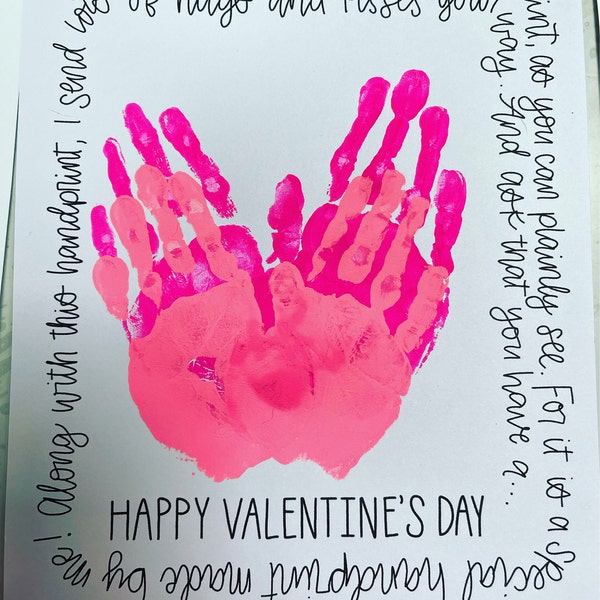 int, as you can plainly see. For it is a
special handprint made by me!
Along with this handprint, I send lots
of hugs and kisses your
way. And ask that you have a...
HAPPY VALENTINE'S DAY